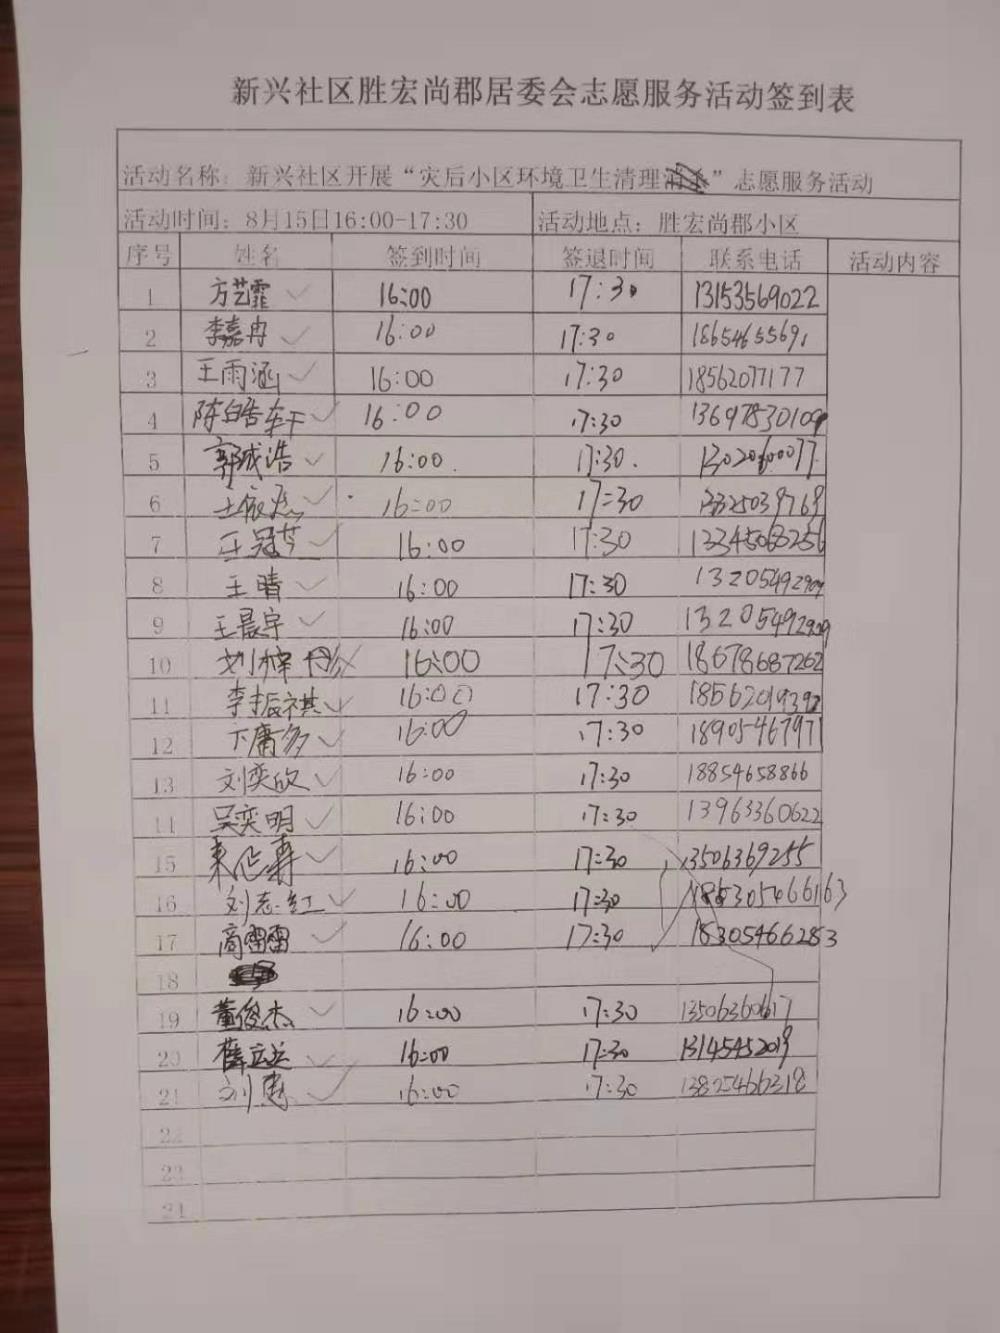 新兴社区胜宏尚郡居委会志愿服务活动签到表
活动名称：新兴社区开展“灾后小区环境卫生清理”志愿服务活动
活动时间：8月15日16:00-17:30 活动地点：胜宏尚郡小区
序号 姓名 签到时间 签退时间 联系电话 活动内容
1 方艺霏 ✓ 16:00 17:30 13153569022
2 李嘉冉 ✓ 16:00 17:30 18654655691
3 王雨涵 ✓ 16:00 17:30 18562077177
4 陈皓轩 ✓ 16:00 17:30 13697830109
5 郭城浩 ✓ 16:00 17:30
6 ✓ 16:00 17:30
7 ✓ 16:00 17:30 13345068256
8 王晴 ✓ 16:00 17:30 13205492909
9 王晨宇 ✓ 16:00 17:30 13205492909
10 16:00 17:30 18678687262
11 李振祺 ✓ 16:00 17:30 18562019392
12 卞庸多 ✓ 16:00 17:30 18905467971
13 刘奕欣 ✓ 16:00 17:30 18854658866
14 吴奕明 ✓ 16:00 17:30 13963360622
15 ✓ 16:00 17:30 13506369255
16 刘志红 ✓ 16:00 17:30
17 高雷雷 ✓ 16:00 17:30 18305466283
18
19 董俊杰 ✓ 16:00 17:30 13506360617
20 ✓ 16:00 17:30 13145452019
21 刘惠 ✓ 16:00 17:30 13825466318
22
23
24